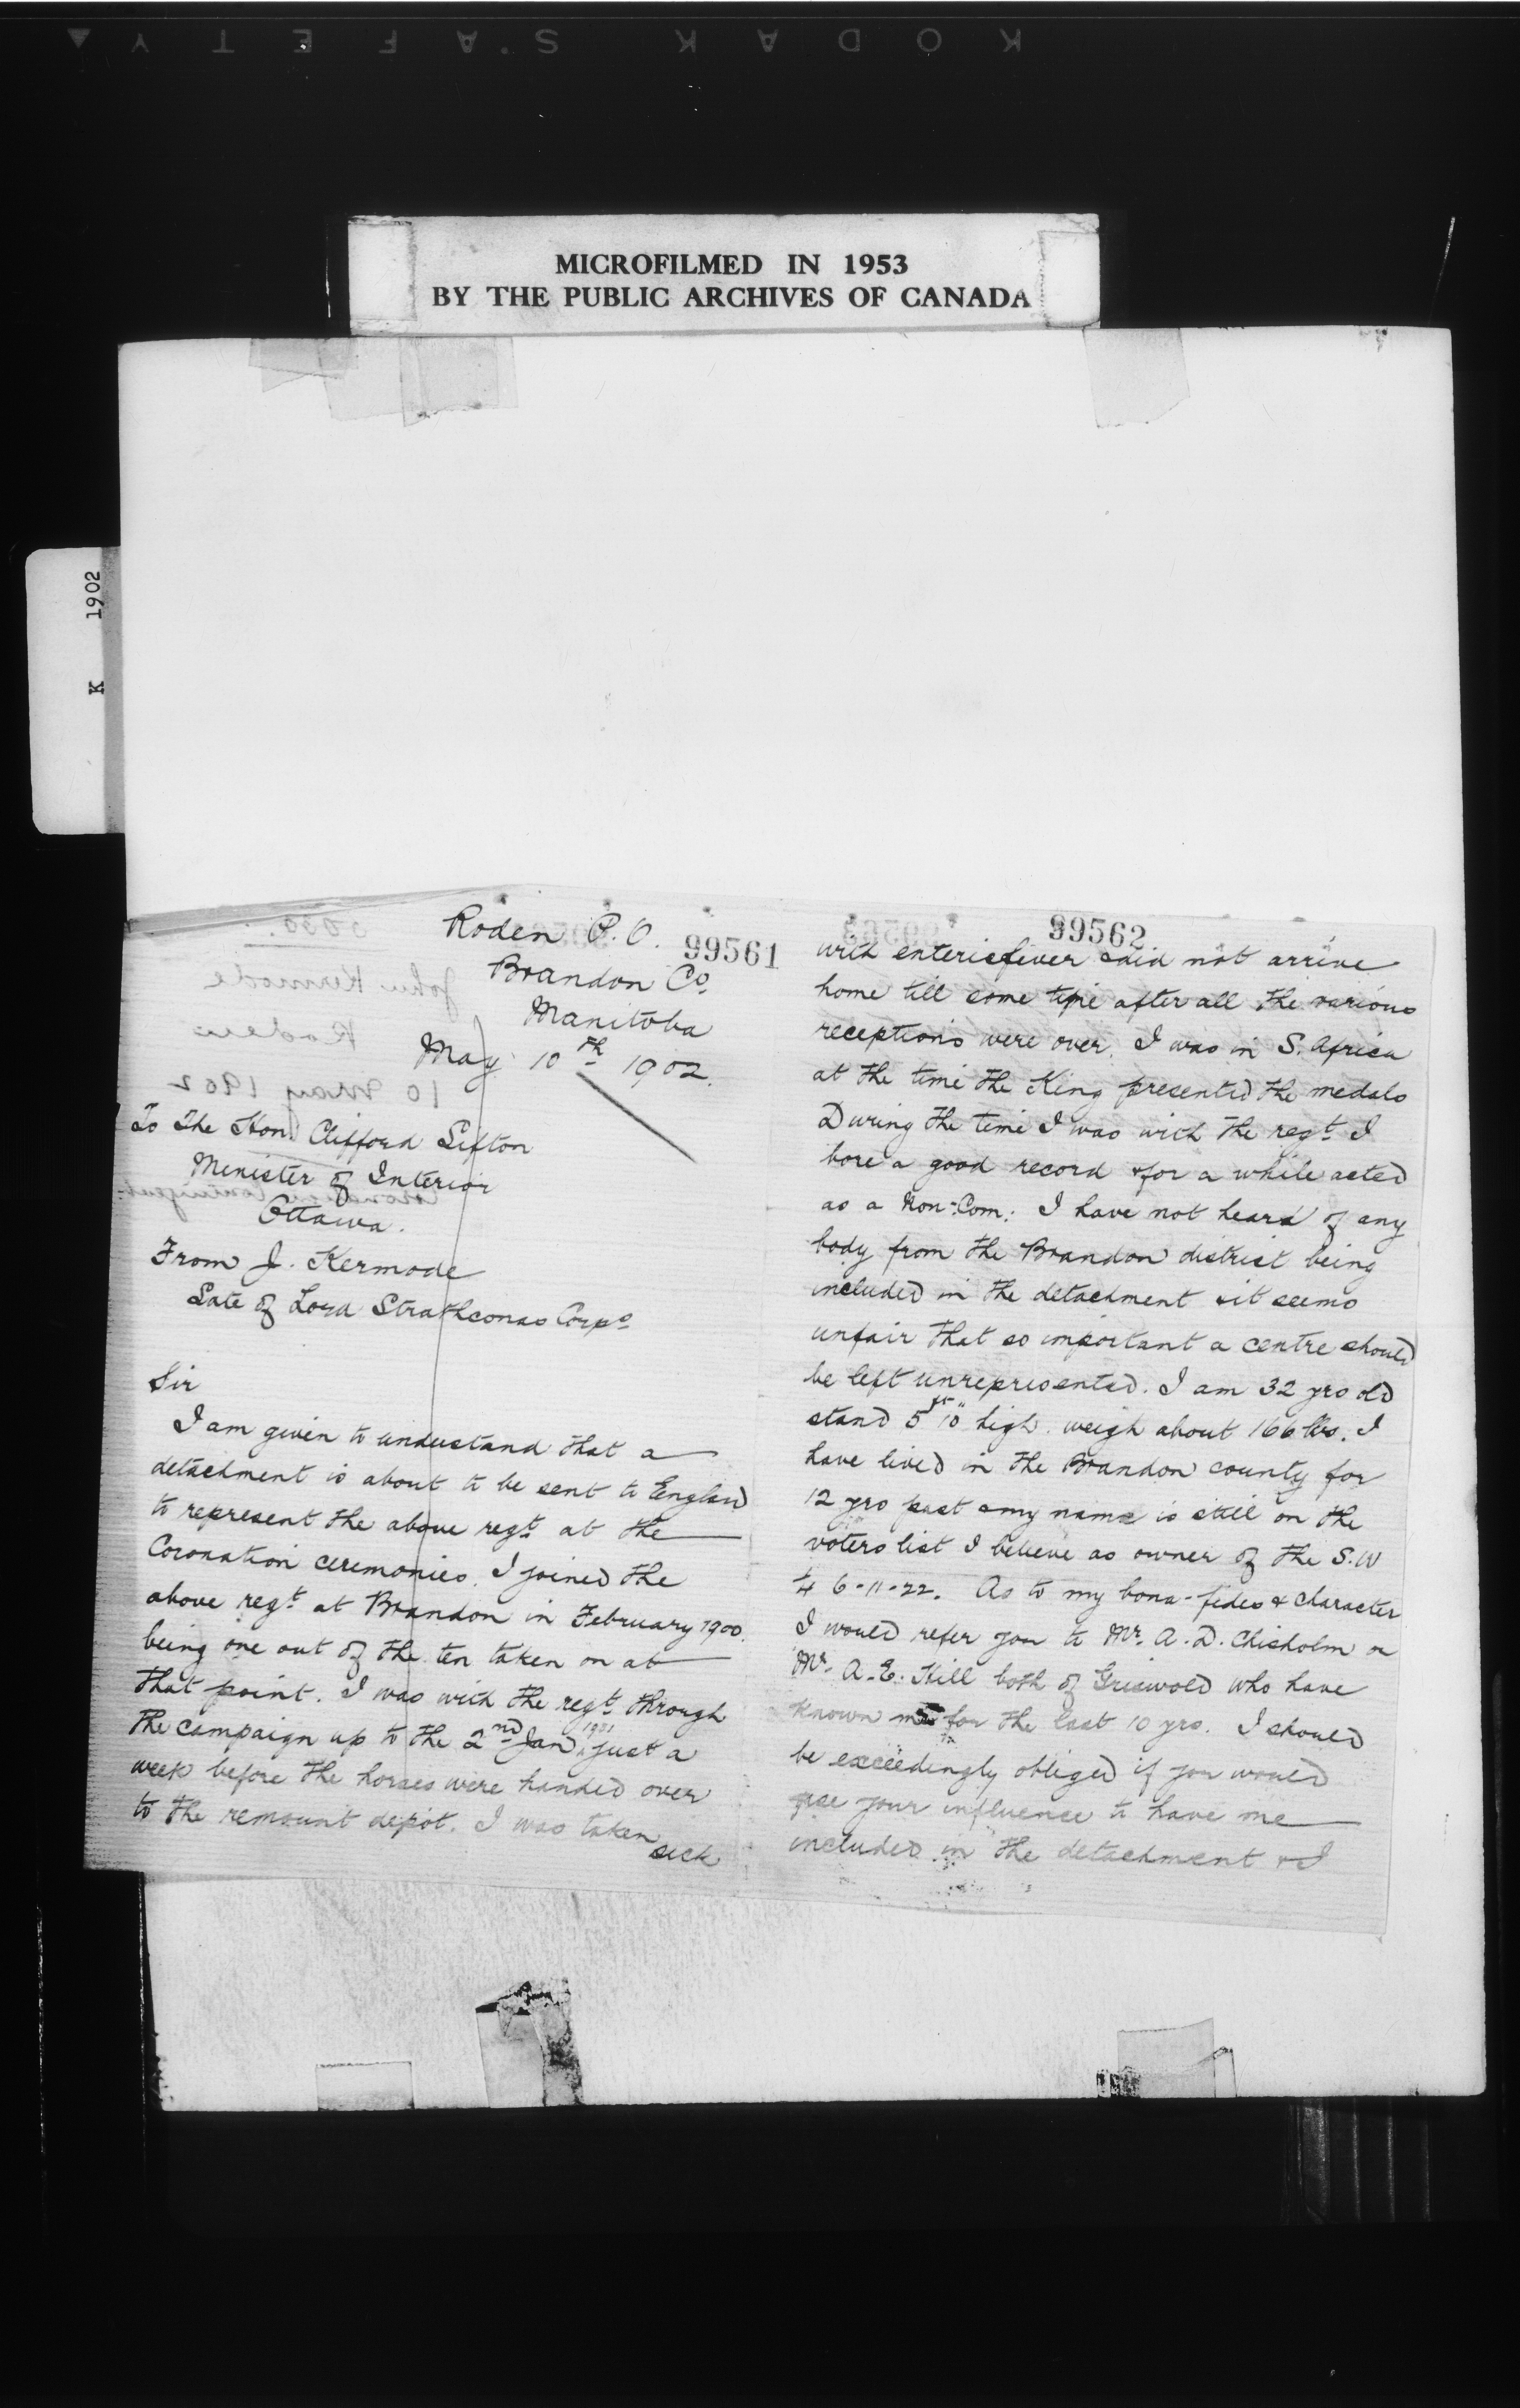 KODAK SAFETY
MICROFILMED IN 1953
BY THE PUBLIC ARCHIVES OF CANADA
K 1902
99561
Roden P. O.
Brandon Co.
Manitoba
May 10th 1902.
To The Hon. Clifford Sifton
Minister of Interior
Ottawa.
From J. Kermode
Late of Lord Strathconas Corps
Sir
I am given to understand that a
detachment is about to be sent to England
to represent the above regt at the
Coronation ceremonies. I joined the
above regt at Brandon in February 1900.
being one out of the ten taken on at
that point. I was with the regt through
the campaign up to the 2nd Jan 1901 just a
week before the horses were handed over
to the remount depot. I was taken
sick
99562
with enteric fever & did not arrive
home till some time after all the various
receptions were over. I was in S. Africa
at the time the King presented the medals
During the time I was with the regt I
bore a good record & for a while acted
as a Non-Com: I have not heard of any
body from the Brandon district being
included in the detachment & it seems
unfair that so important a centre should
be left unrepresented. I am 32 yrs old
stand 5ft 10" high. weigh about 166 lbs. I
have lived in the Brandon county for
12 yrs past & my name is still on the
voters list I believe as owner of the S.W
1/4 6-11-22. As to my bona-fides & character
I would refer you to Mr. A. D. Chisholm or
Mr. A. E. Hill both of Griswold who have
known me for the last 10 yrs. I should
be exceedingly obliged if you would
use your influence to have me
included in the detachment & I